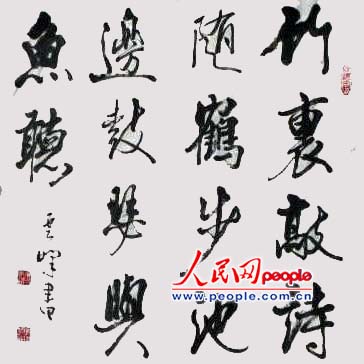 竹裏敲詩
随鶴步池
邊鼓琴與
魚聽
人民网people
www.people.com.cn